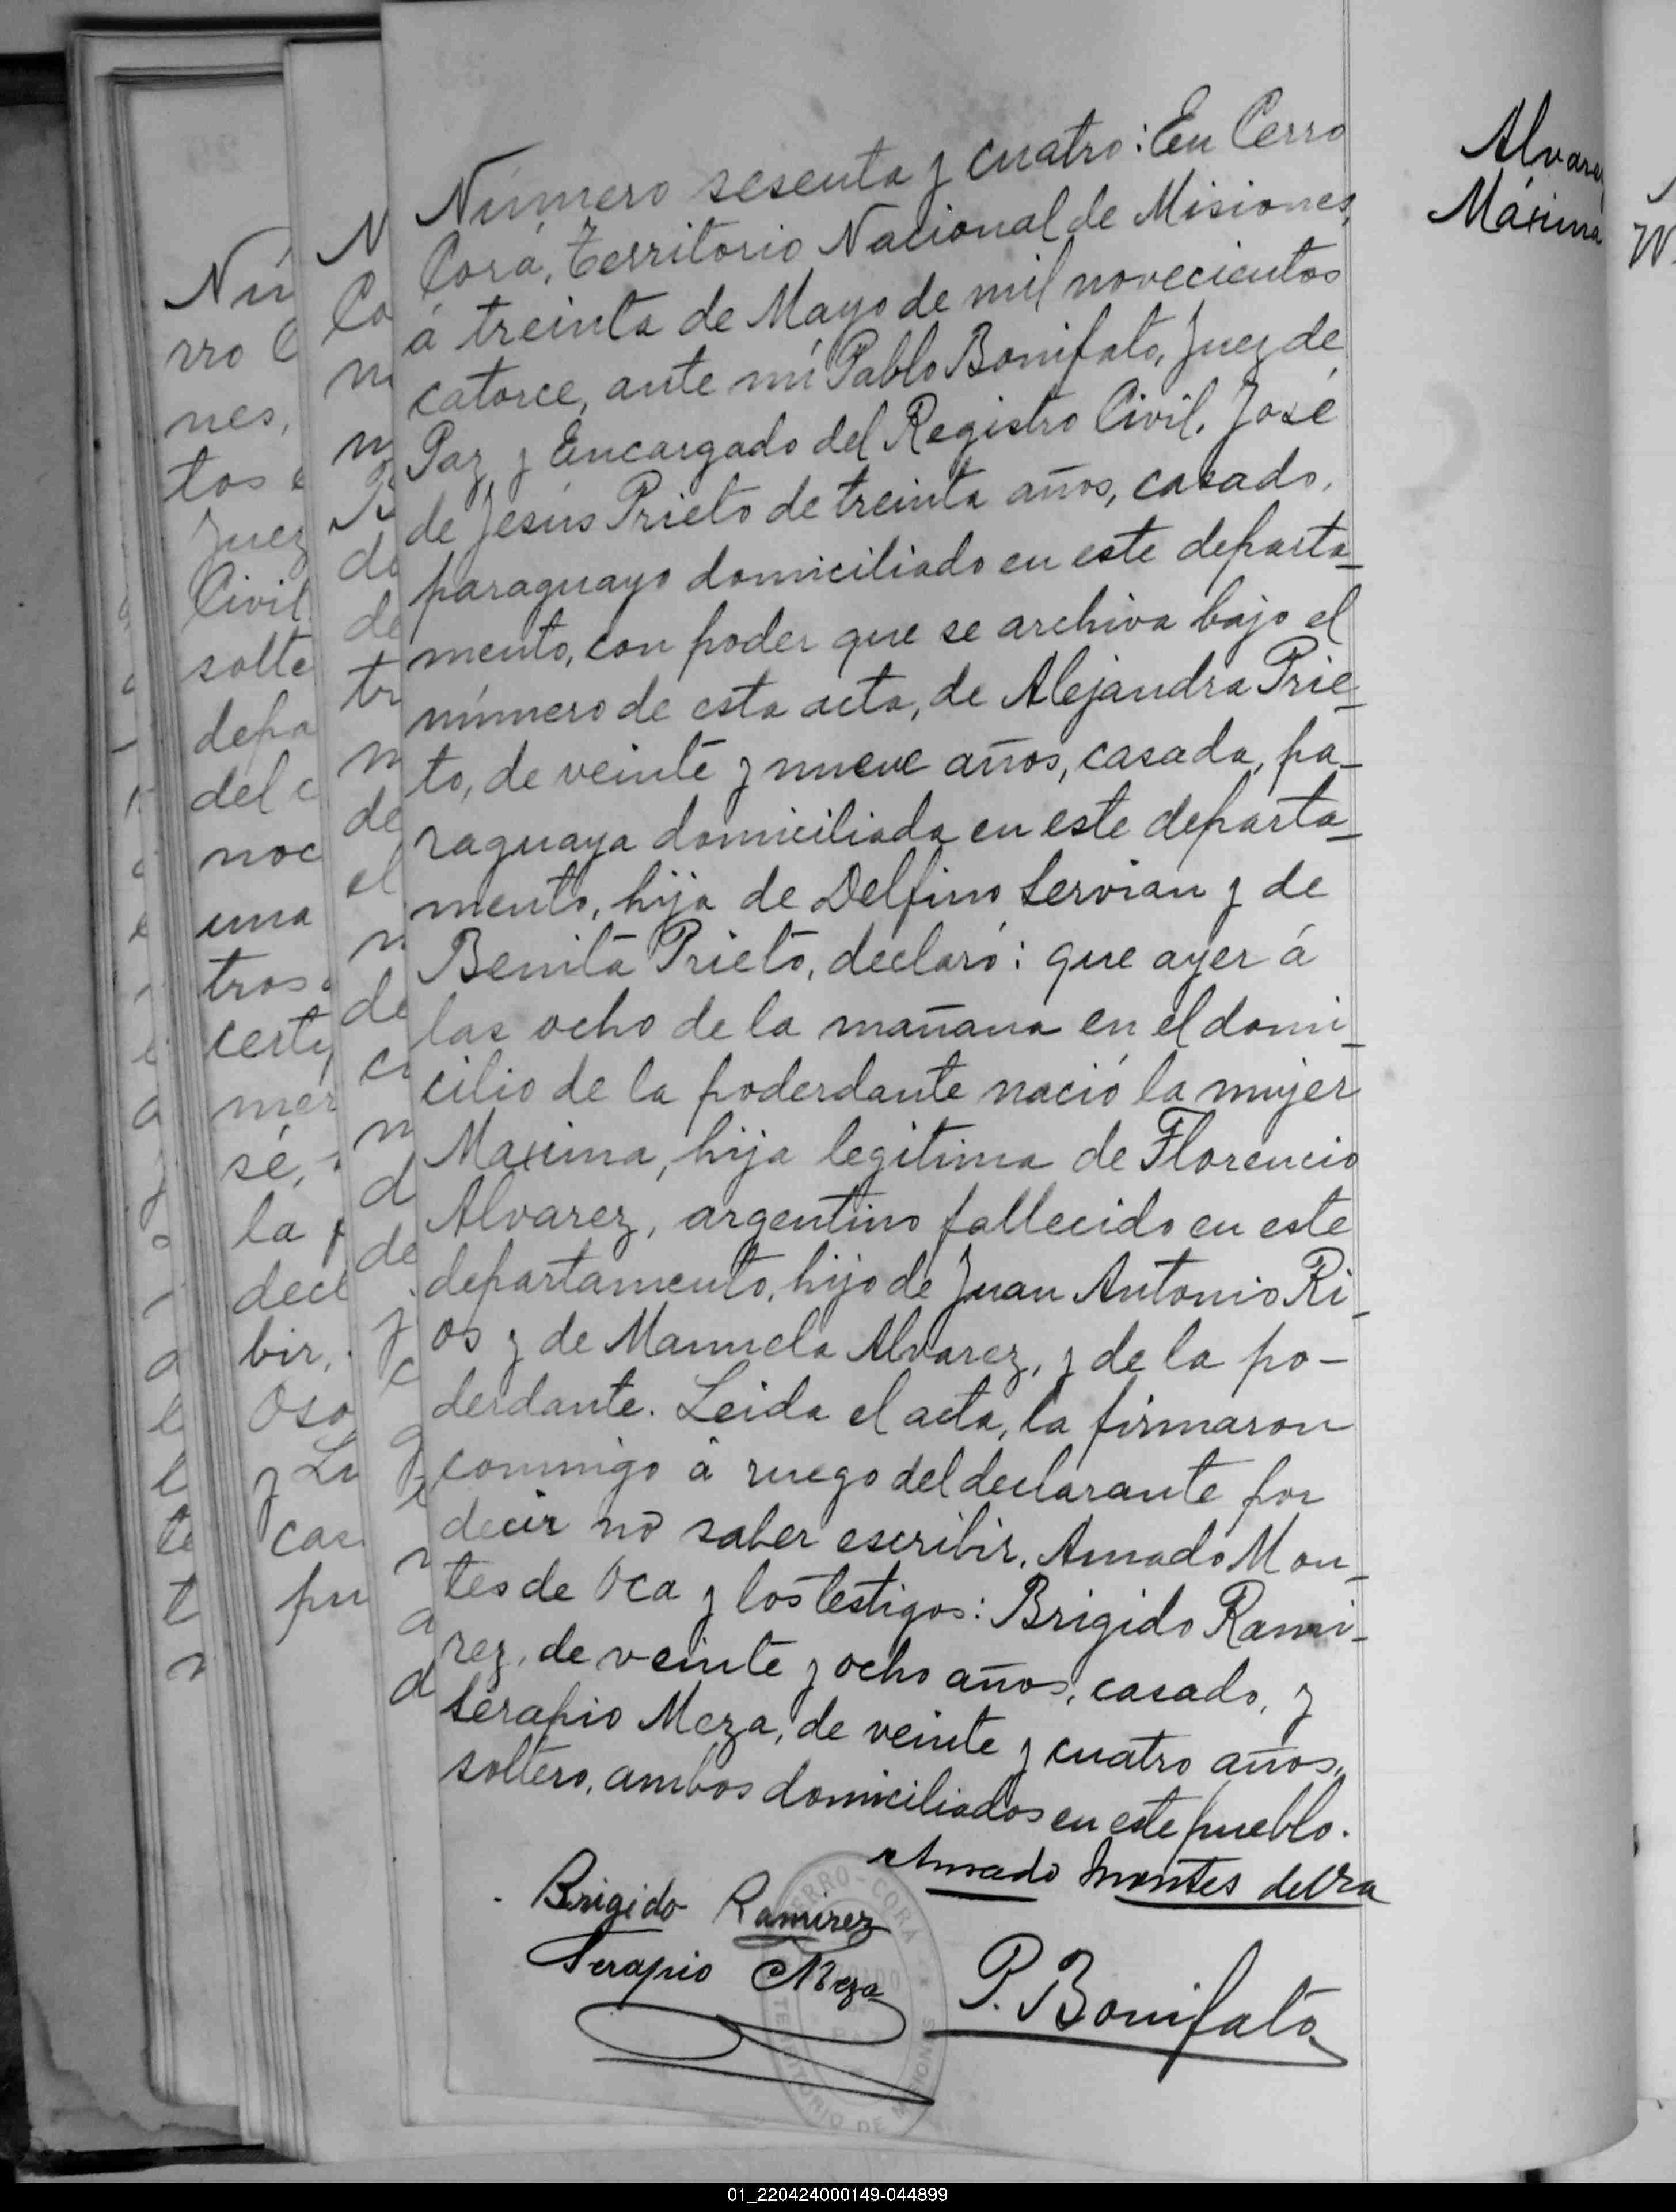 Alvarez
Máxima
Número sesenta y cuatro: En Cerro
Corá, Territorio Nacional de Misiones,
á treinta de Mayo de mil novecientos
catorce, ante mí Pablo Bonifato, Juez de
Paz y Encargado del Registro Civil, José
de Jesús Prieto de treinta años, casado,
paraguayo domiciliado en este departa-
mento, con poder que se archiva bajo el
número de esta acta, de Alejandra Prie-
to, de veinte y nueve años, casada, pa-
raguaya domiciliada en este departa-
mento, hija de Delfino Servian y de
Benita Prieto, declaró: que ayer á
las ocho de la mañana en el domi-
cilio de la poderdante nació la mujer
Maxima, hija legitima de Florencio
Alvarez, argentino fallecido en este
departamento, hijo de Juan Antonio Ri-
os y de Manuela Alvarez, y de la po-
derdante. Leida el acta, la firmaron
conmigo á ruego del declarante por
decir no saber escribir, Amado Mon-
tes de Oca y los testigos: Brigido Rami-
rez, de veinte y ocho años, casado, y
Serapio Meza, de veinte y cuatro años,
soltero, ambos domiciliados en este pueblo.
Amado Montes de Oca
Brigido Ramirez
Serapio Meza
P. Bonifato
CERRO-CORA
TERRITORIO DE MISIONES
01_220424000149-044899